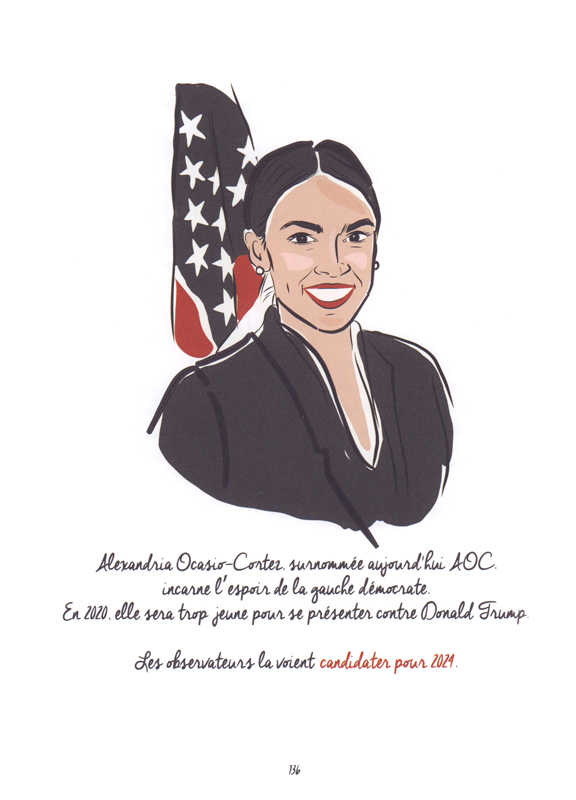 Alexandria Ocasio-Cortez, surnommée aujourd'hui AOC,
incarne l'espoir de la gauche démocrate.
En 2020, elle sera trop jeune pour se présenter contre Donald Trump.
Les observateurs la voient candidater pour 2024.
136